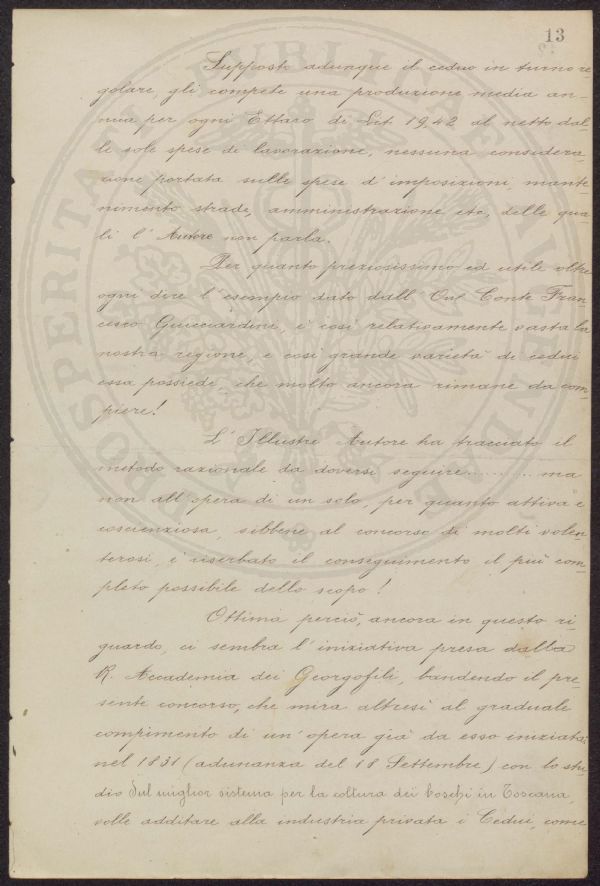 13
Supposto adunque il ceduo in turno re-
golare, gli compete una produzione media an-
nua per ogni Ettaro di Lit. 19,42 al netto dal-
le sole spese di lavorazione, nessuna considera-
zione portata sulle spese d'imposizioni, mante-
nimento strade, amministrazione etc, delle qua-
li l'Autore non parla.
Per quanto preziosissimo ed utile oltre
ogni dire l'esempio dato dall' Onl Conte Fran-
cesco Guicciardini, è così relativamente vasta la
nostra regione, e così grande varietà di cedui
essa possiede, che molto ancora rimane da com-
piere!
L'Illustre Autore ha tracciato il
metodo razionale da doversi seguire.......... ma
non all'opera di un solo, per quanto attiva e
coscienziosa, sibbene al concorso di molti volen-
terosi, è riserbato il conseguimento il più com-
pleto possibile dello scopo!
Ottima perciò, ancora in questo ri-
guardo, ci sembra l'iniziativa presa dalla
R. Accademia dei Georgofili, bandendo il pre-
sente concorso, che mira altresì al graduale
compimento di un'opera già da esso iniziata;
nel 1831 (adunanza del 18 Settembre) con lo stu-
dio Sul miglior sistema per la coltura dei boschi in Toscana,
volle additare alla industria privata i Cedui, come
PROSPERITATI PUBLICAE AUGENDAE